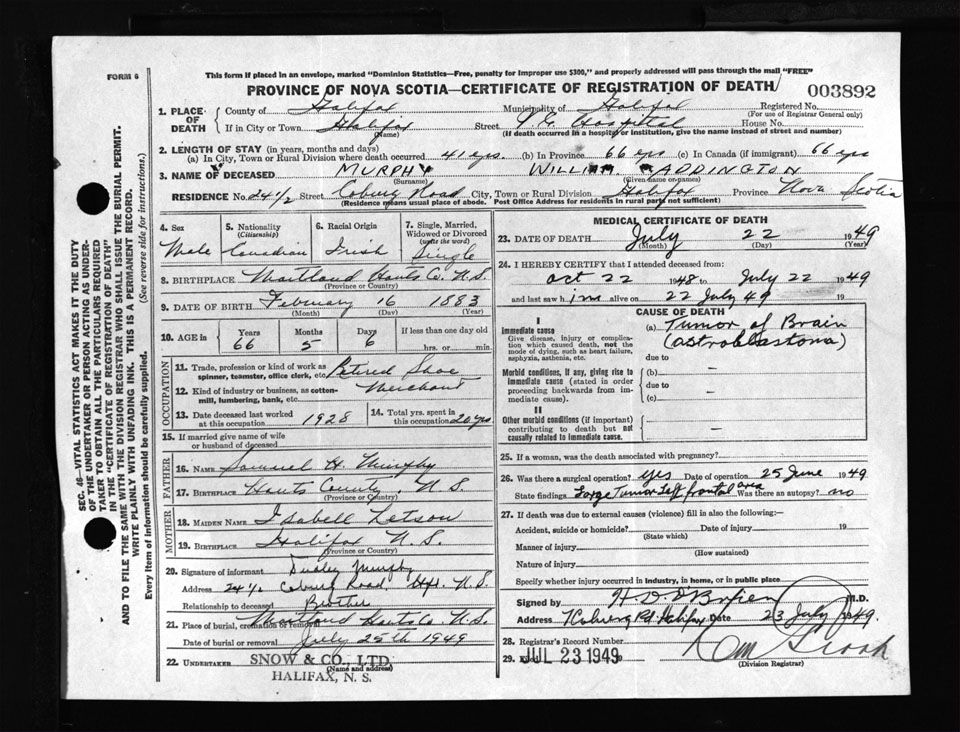 This form if placed in an envelope, marked "Dominion Statistics—Free, penalty for improper use $300," and properly addressed will pass through the mail "FREE"
FORM 6
PROVINCE OF NOVA SCOTIA—CERTIFICATE OF REGISTRATION OF DEATH
003892
1. PLACE OF DEATH
County of Halifax Municipality of Halifax Registered No.
(For use of Registrar General only)
If in City or Town Halifax Street V G Hospital House No.
(Name) (If death occurred in a hospital or institution, give the name instead of street and number)
2. LENGTH OF STAY (in years, months and days)
(a) In City, Town or Rural Division where death occurred 41 yrs. (b) In Province 66 yrs (c) In Canada (if immigrant) 66 yrs
3. NAME OF DECEASED MURPHY WILLIAM ADDINGTON
(Surname) (Given name or names)
RESIDENCE No. 24 1/2 Street Coburg Road City, Town or Rural Division Halifax Province Nova Scotia
(Residence means usual place of abode. Post Office Address for residents in rural parts not sufficient)
4. Sex Male
5. Nationality (Citizenship) Canadian
6. Racial Origin Irish
7. Single, Married, Widowed or Divorced (write the word) Single
8. BIRTHPLACE Maitland Hants Co. N.S.
(Province or Country)
9. DATE OF BIRTH February 16 1883
(Month) (Day) (Year)
10. AGE in Years Months Days If less than one day old
66 5 6 hrs. or min.
OCCUPATION
11. Trade, profession or kind of work as spinner, teamster, office clerk, etc. Retired Shoe
12. Kind of industry or business, as cotton-mill, lumbering, bank, etc. Merchant
13. Date deceased last worked at this occupation 1928
14. Total yrs. spent in this occupation 20 yrs.
15. If married give name of wife or husband of deceased
FATHER
16. NAME Samuel H. Murphy
17. BIRTHPLACE Hants County, N.S.
(Province or Country)
MOTHER
18. MAIDEN NAME Isabell Letson
19. BIRTHPLACE Halifax N.S.
(Province or Country)
20. Signature of informant Murphy
Address 24 1/2 Coburg Road, Hfx. N.S.
Relationship to deceased Brother
21. Place of burial, cremation or removal Maitland Hants Co. N.S.
Date of burial or removal July 25th 1949
22. UNDERTAKER SNOW & CO., LTD.
(Name and address)
HALIFAX, N. S.
MEDICAL CERTIFICATE OF DEATH
23. DATE OF DEATH July 22 1949
(Month) (Day) (Year)
24. I HEREBY CERTIFY that I attended deceased from:
Oct 22 1948 to July 22 1949
and last saw him alive on 22 July 49 19
CAUSE OF DEATH
I
Immediate cause
Give disease, injury or complication which caused death, not the mode of dying, such as heart failure, asphyxia, asthenia, etc.
(a) Tumor of Brain
(astroblastoma)
due to
Morbid conditions, if any, giving rise to immediate cause (stated in order proceeding backwards from immediate cause).
(b) —
due to
(c) —
II
Other morbid conditions (if important) contributing to death but not causally related to immediate cause.
—
25. If a woman, was the death associated with pregnancy?
26. Was there a surgical operation? yes Date of operation 25 June 1949
State findings Large Tumor left frontal area Was there an autopsy? no
27. If death was due to external causes (violence) fill in also the following:—
Accident, suicide or homicide? Date of injury 19
(State which)
Manner of injury
(How sustained)
Nature of injury
Specify whether injury occurred in industry, in home, or in public place
Signed by H. D. O'Brien M.D.
Address Coburg Rd. Halifax Date 23 July 1949
28. Registrar's Record Number
29. Filed JUL 23 1949
(Division Registrar)
SEC. 46—VITAL STATISTICS ACT MAKES IT THE DUTY
OF THE UNDERTAKER OR PERSON ACTING AS UNDER-
TAKER TO OBTAIN ALL THE PARTICULARS REQUIRED
IN THE "CERTIFICATE OF REGISTRATION OF DEATH"
AND TO FILE THE SAME WITH THE DIVISION REGISTRAR WHO SHALL ISSUE THE BURIAL PERMIT.
WRITE PLAINLY WITH UNFADING INK. THIS IS A PERMANENT RECORD.
Every item of information should be carefully supplied. (See reverse side for instructions.)